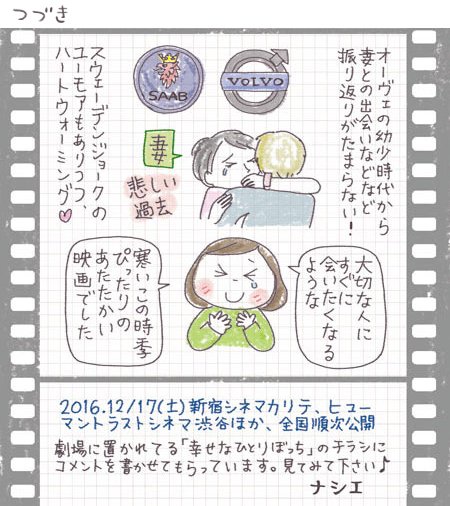 つづき
オーヴェの幼少時代から
妻との出会いなどなど
振り返りがたまらない!
VOLVO
SAAB
妻
悲しい
過去
スウェーデンジョークの
ユーモアもありつつ、
ハートウォーミング♥
大切な人に
すぐに
会いたくなる
ような
寒いこの時季
ぴったりの
あたたかい
映画でした
2016.12/17(土)新宿シネマカリテ、ヒュー
マントラストシネマ渋谷ほか、全国順次公開
劇場に置かれてる「幸せなひとりぼっち」のチラシに
コメントを書かせてもらっています。見てみて下さい♪
ナシエ